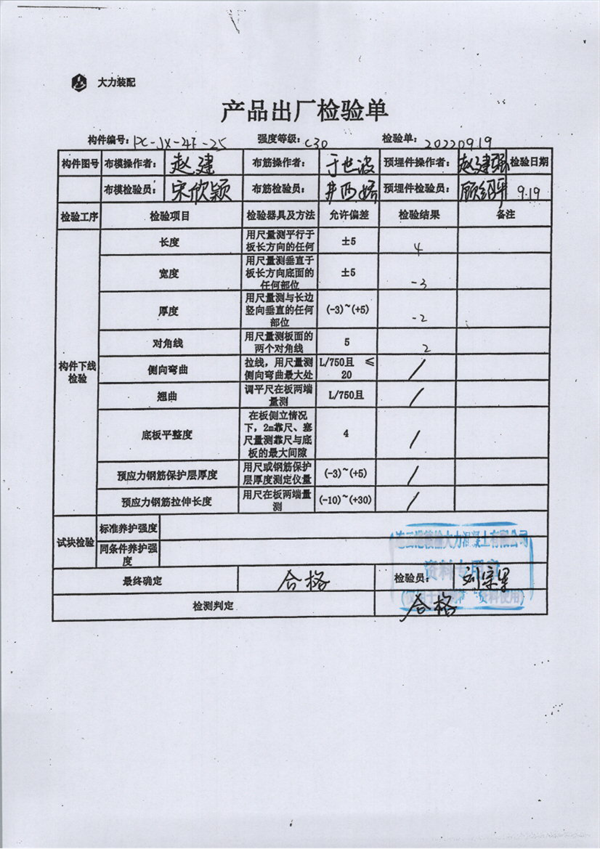 大力装配
产品出厂检验单
构件编号: PC-JX-4F-25 强度等级: C30 检验单: 20220919
构件图号 布模操作者: 赵建 布筋操作者: 于世波 预埋件操作者: 赵建 检验日期
布模检验员: 宋欣颖 布筋检验员: 预埋件检验员: 9.19
检验工序 检验项目 检验器具及方法 允许偏差 检验结果 备注
构件下线检验
长度 用尺量测平行于板长方向的任何 ±5 4
宽度 用尺量测垂直于板长方向底面的任何部位 ±5 -3
厚度 用尺量测与长边竖向垂直的任何部位 (-3)~(+5) -2
对角线 用尺量测板面的两个对角线 5 2
侧向弯曲 拉线，用尺量测侧向弯曲最大处 L/750且 ≤20 /
翘曲 调平尺在板两端量测 L/750且 /
底板平整度 在板侧立情况下，2m靠尺、塞尺量测靠尺与底板的最大间隙 4 /
预应力钢筋保护层厚度 用尺或钢筋保护层厚度测定仪量 (-3)~(+5) /
预应力钢筋拉伸长度 用尺在板两端量测 (-10)~(+30) /
试块检验 标准养护强度
同条件养护强度
大力混凝土有限公司
资料专用章
最终确定 合格 检验员:
检测判定 合格